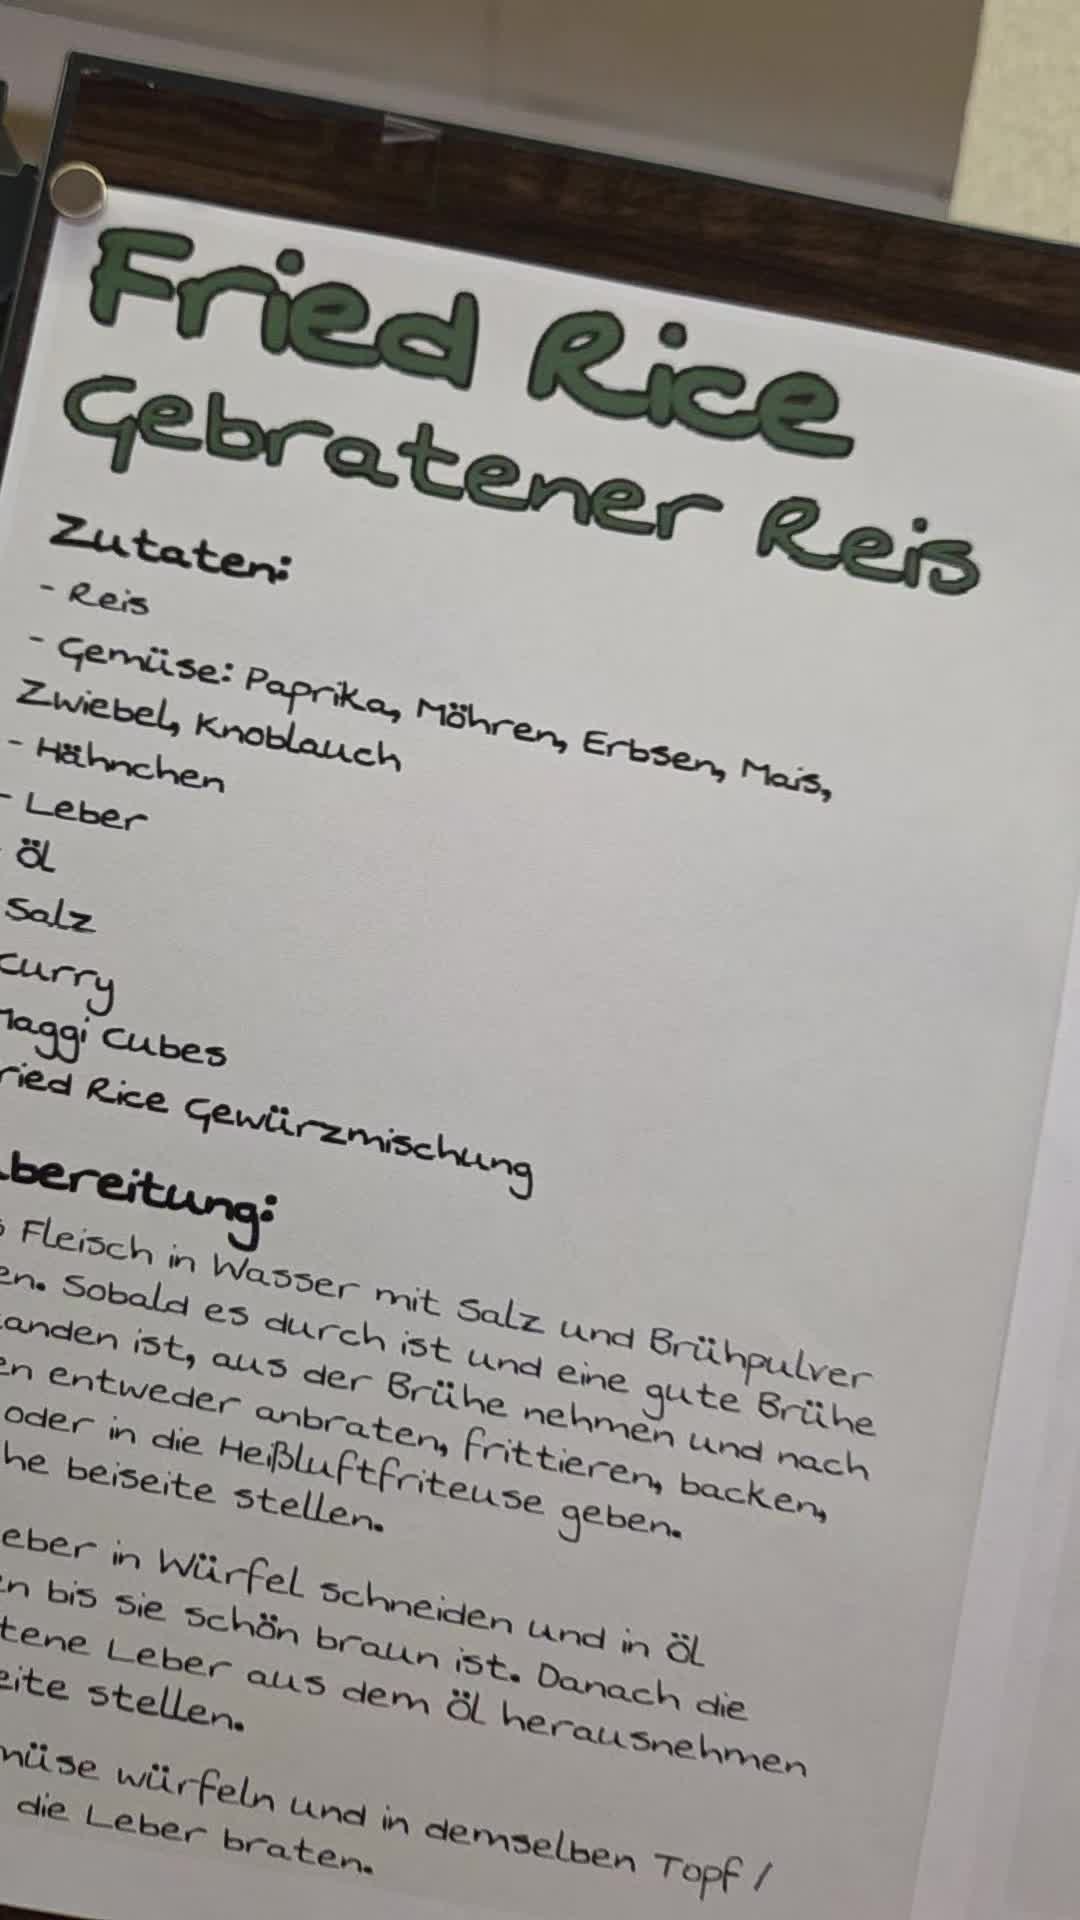 Fried Rice
Gebratener Reis
Zutaten:
- Reis
- Gemüse: Paprika, Möhren, Erbsen, Mais,
Zwiebel, Knoblauch
- Hähnchen
- Leber
öl
Salz
curry
Maggi cubes
Fried Rice Gewürzmischung
Fleisch in Wasser mit Salz und Brühpulver
en. Sobald es durch ist und eine gute Brühe
anden ist, aus der Brühe nehmen und nach
en entweder anbraten, frittieren, backen,
oder in die Heißluftfriteuse geben.
he beiseite stellen.
eber in Würfel schneiden und in öl
en bis sie schön braun ist. Danach die
tene Leber aus dem öl herausnehmen
eite stellen.
müse würfeln und in demselben Topf /
die Leber braten.